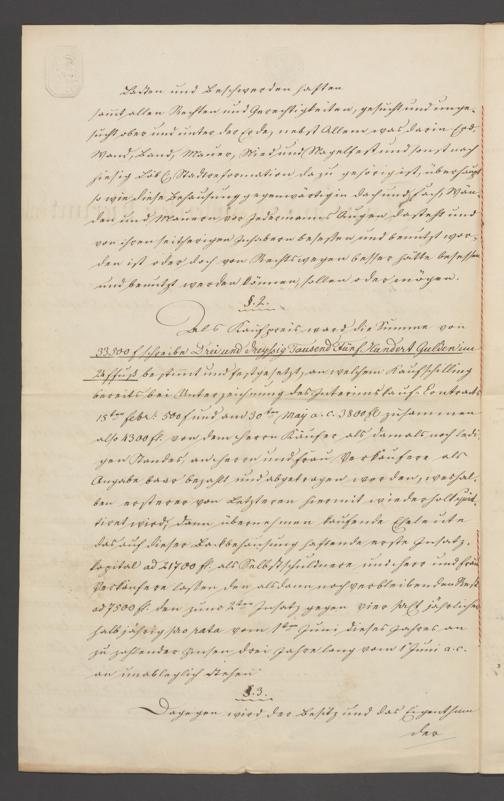 Lasten und Beschwerden haften
sammt allen Rechten und Gerechtigkeiten, gesucht und unge-
sucht, ober und unter der Erde, nebst Allem was darin Erd-
Wand, Band, Mauer, Nied und Nagelfest und sonst nach
hiesig Löbl. Stadtreformation dazu gehörig ist, überhaupt
so wie diese Behausung gegenwärtig in Dach und Fach, Wän-
den und Mauern vor Jedermanns Augen dasteht und
von ihren seitherigen Inhabern besessen und benutzt wor-
den ist oder doch von Rechtswegen besser hätte besessen
und benutzt werden können, sollen oder mögen.
§. 2.
Als Kaufpreis ward die Summe von
33500 f schreibe Drei und dreyßig Tausend Fünf Hundert Gulden im
bestimmt und festgesetzt, an welchem Kaufschilling
bereits bei Unterzeichnung des Interims Kauf-Contracts
15ten Febr. 500 f und am 30ten May a. c. 3800 fl zusammen
also 4300 fl. von dem Herrn Käufer als damals noch ledi-
gen Standes an Herrn und Frau Verkäufere als
Angabe baar bezahlt und abgetragen worden, weshal-
ben ersterer von Letzteren hiermit wiederholt quit-
tiret wird, dann übernehmen kaufende Eheleute
das auf dieser Behausung haftende erste Insatz-
kapital ad 21700 fl. als Selbstschuldnere und Herr und Frau
Verkäufere lassen den alsdann noch verbleibenden Rest
ad 7500 fl. den zum 2ten Insatz gegen vier jährlicher
halbjährig pro rata vom 1ten Juni dieses Jahres an
zu zahlender Zinsen drei Jahre lang vom 1 Juni a. c.
an unableglich stehen
§. 3.
Dagegen wird der Besitz und das Eigenthum
der